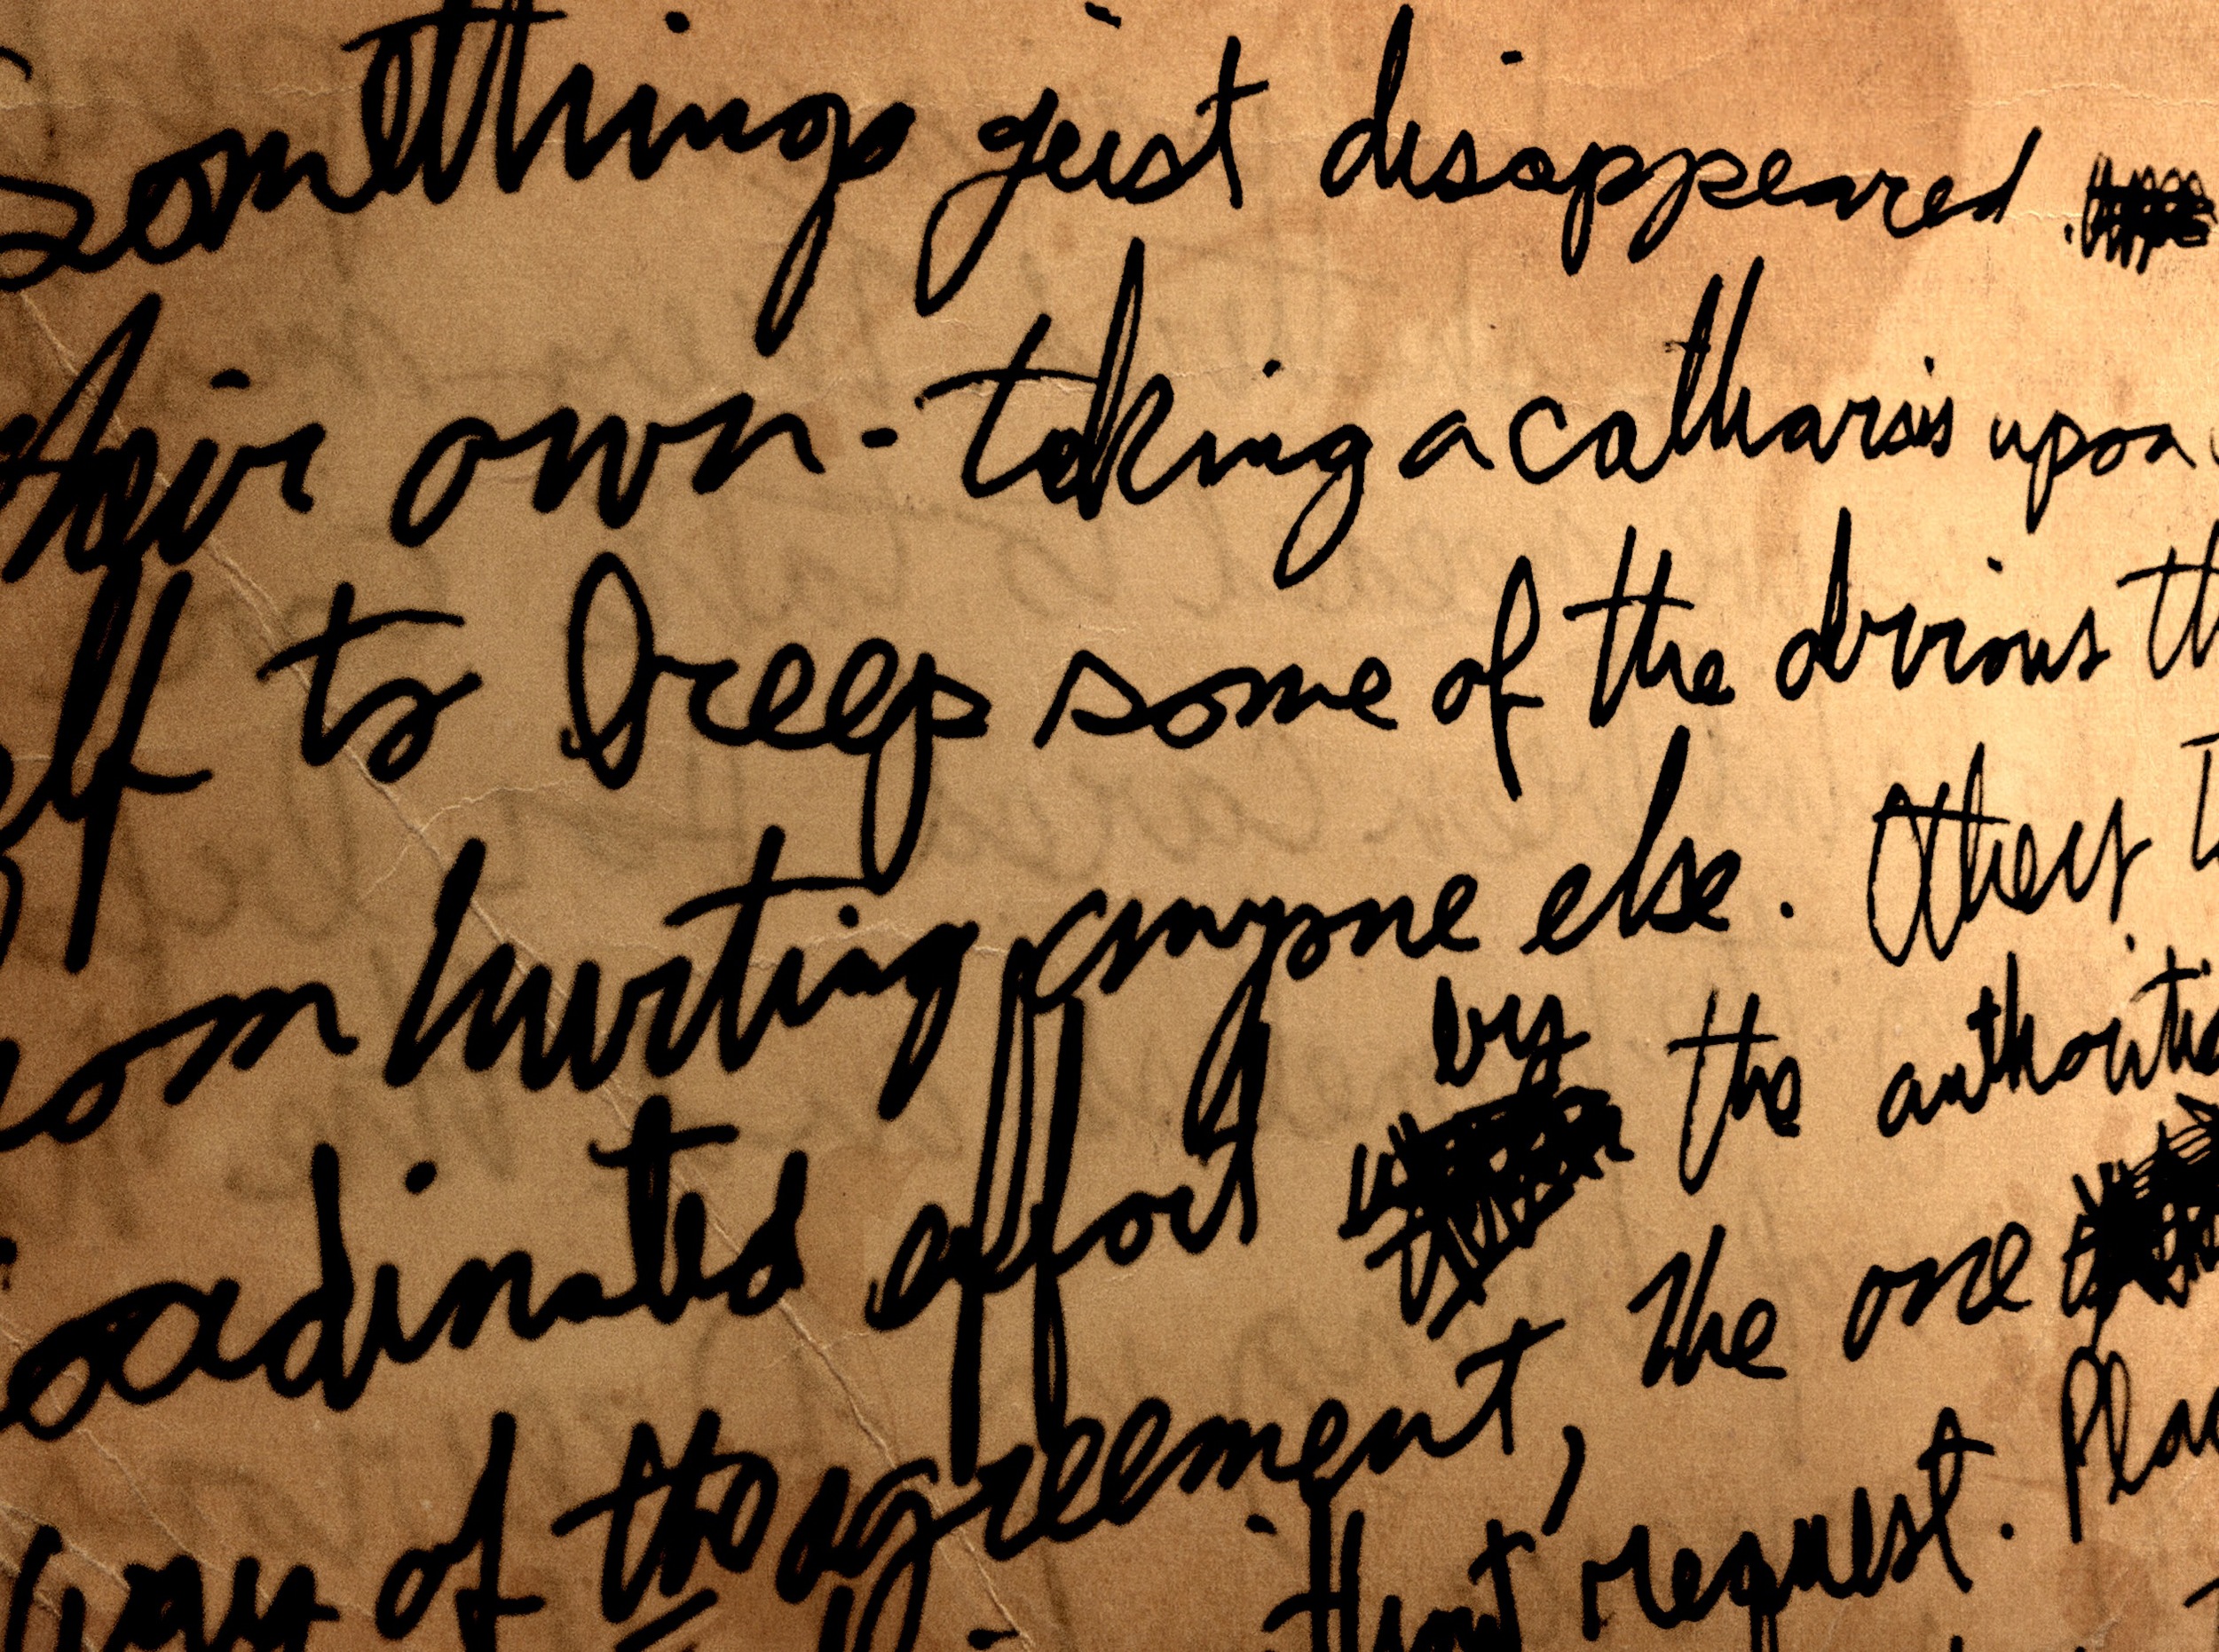 Somethings just disappeared
their own - taking a catharsis upon
elf to keep some of the obvious th
om hurting anyone else. Others t
by
oordinated effort the authoritie
of the agreement, the one
thout request. Plac